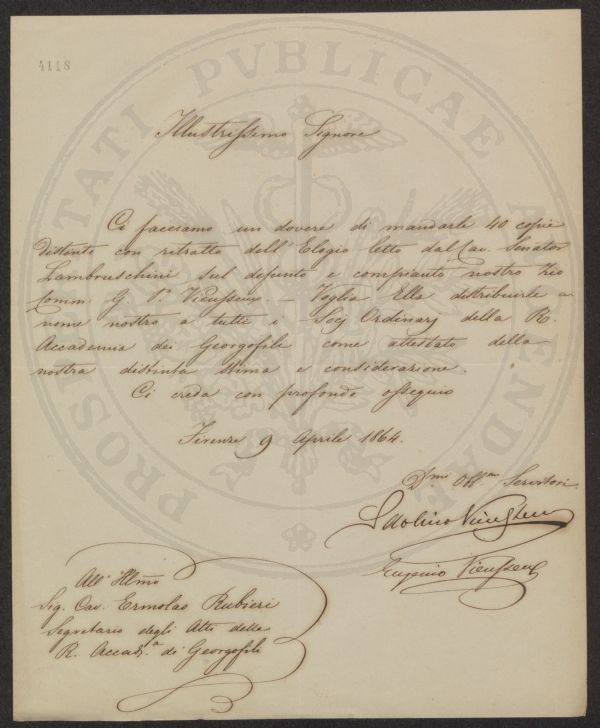 4118
PROSPERITATI PVBLICAE AVGENDAE
Illustrissimo Signore
Ci facciamo un dovere di mandarle 40 copie
distinte con ritratto dell'Elogio letto dal Cav. Senator
Lambruschini sul defunto e compianto nostro Zio
Comm. G. P. Vieusseux. — Voglia Ella distribuirle a
nome nostro a tutti i Socj Ordinarj della R.
Accademia dei Georgofili come attestato della
nostra distinta stima e considerazione.
Ci creda con profondo ossequio
Firenze 9 Aprile 1864.
Dmi Obbmi Servitori
Vieusseux
Eugenio Vieusseux
All' Illmo
Sig. Cav. Ermolao Rubieri
Segretario degli Atti della
R. Accad.a di Georgofili